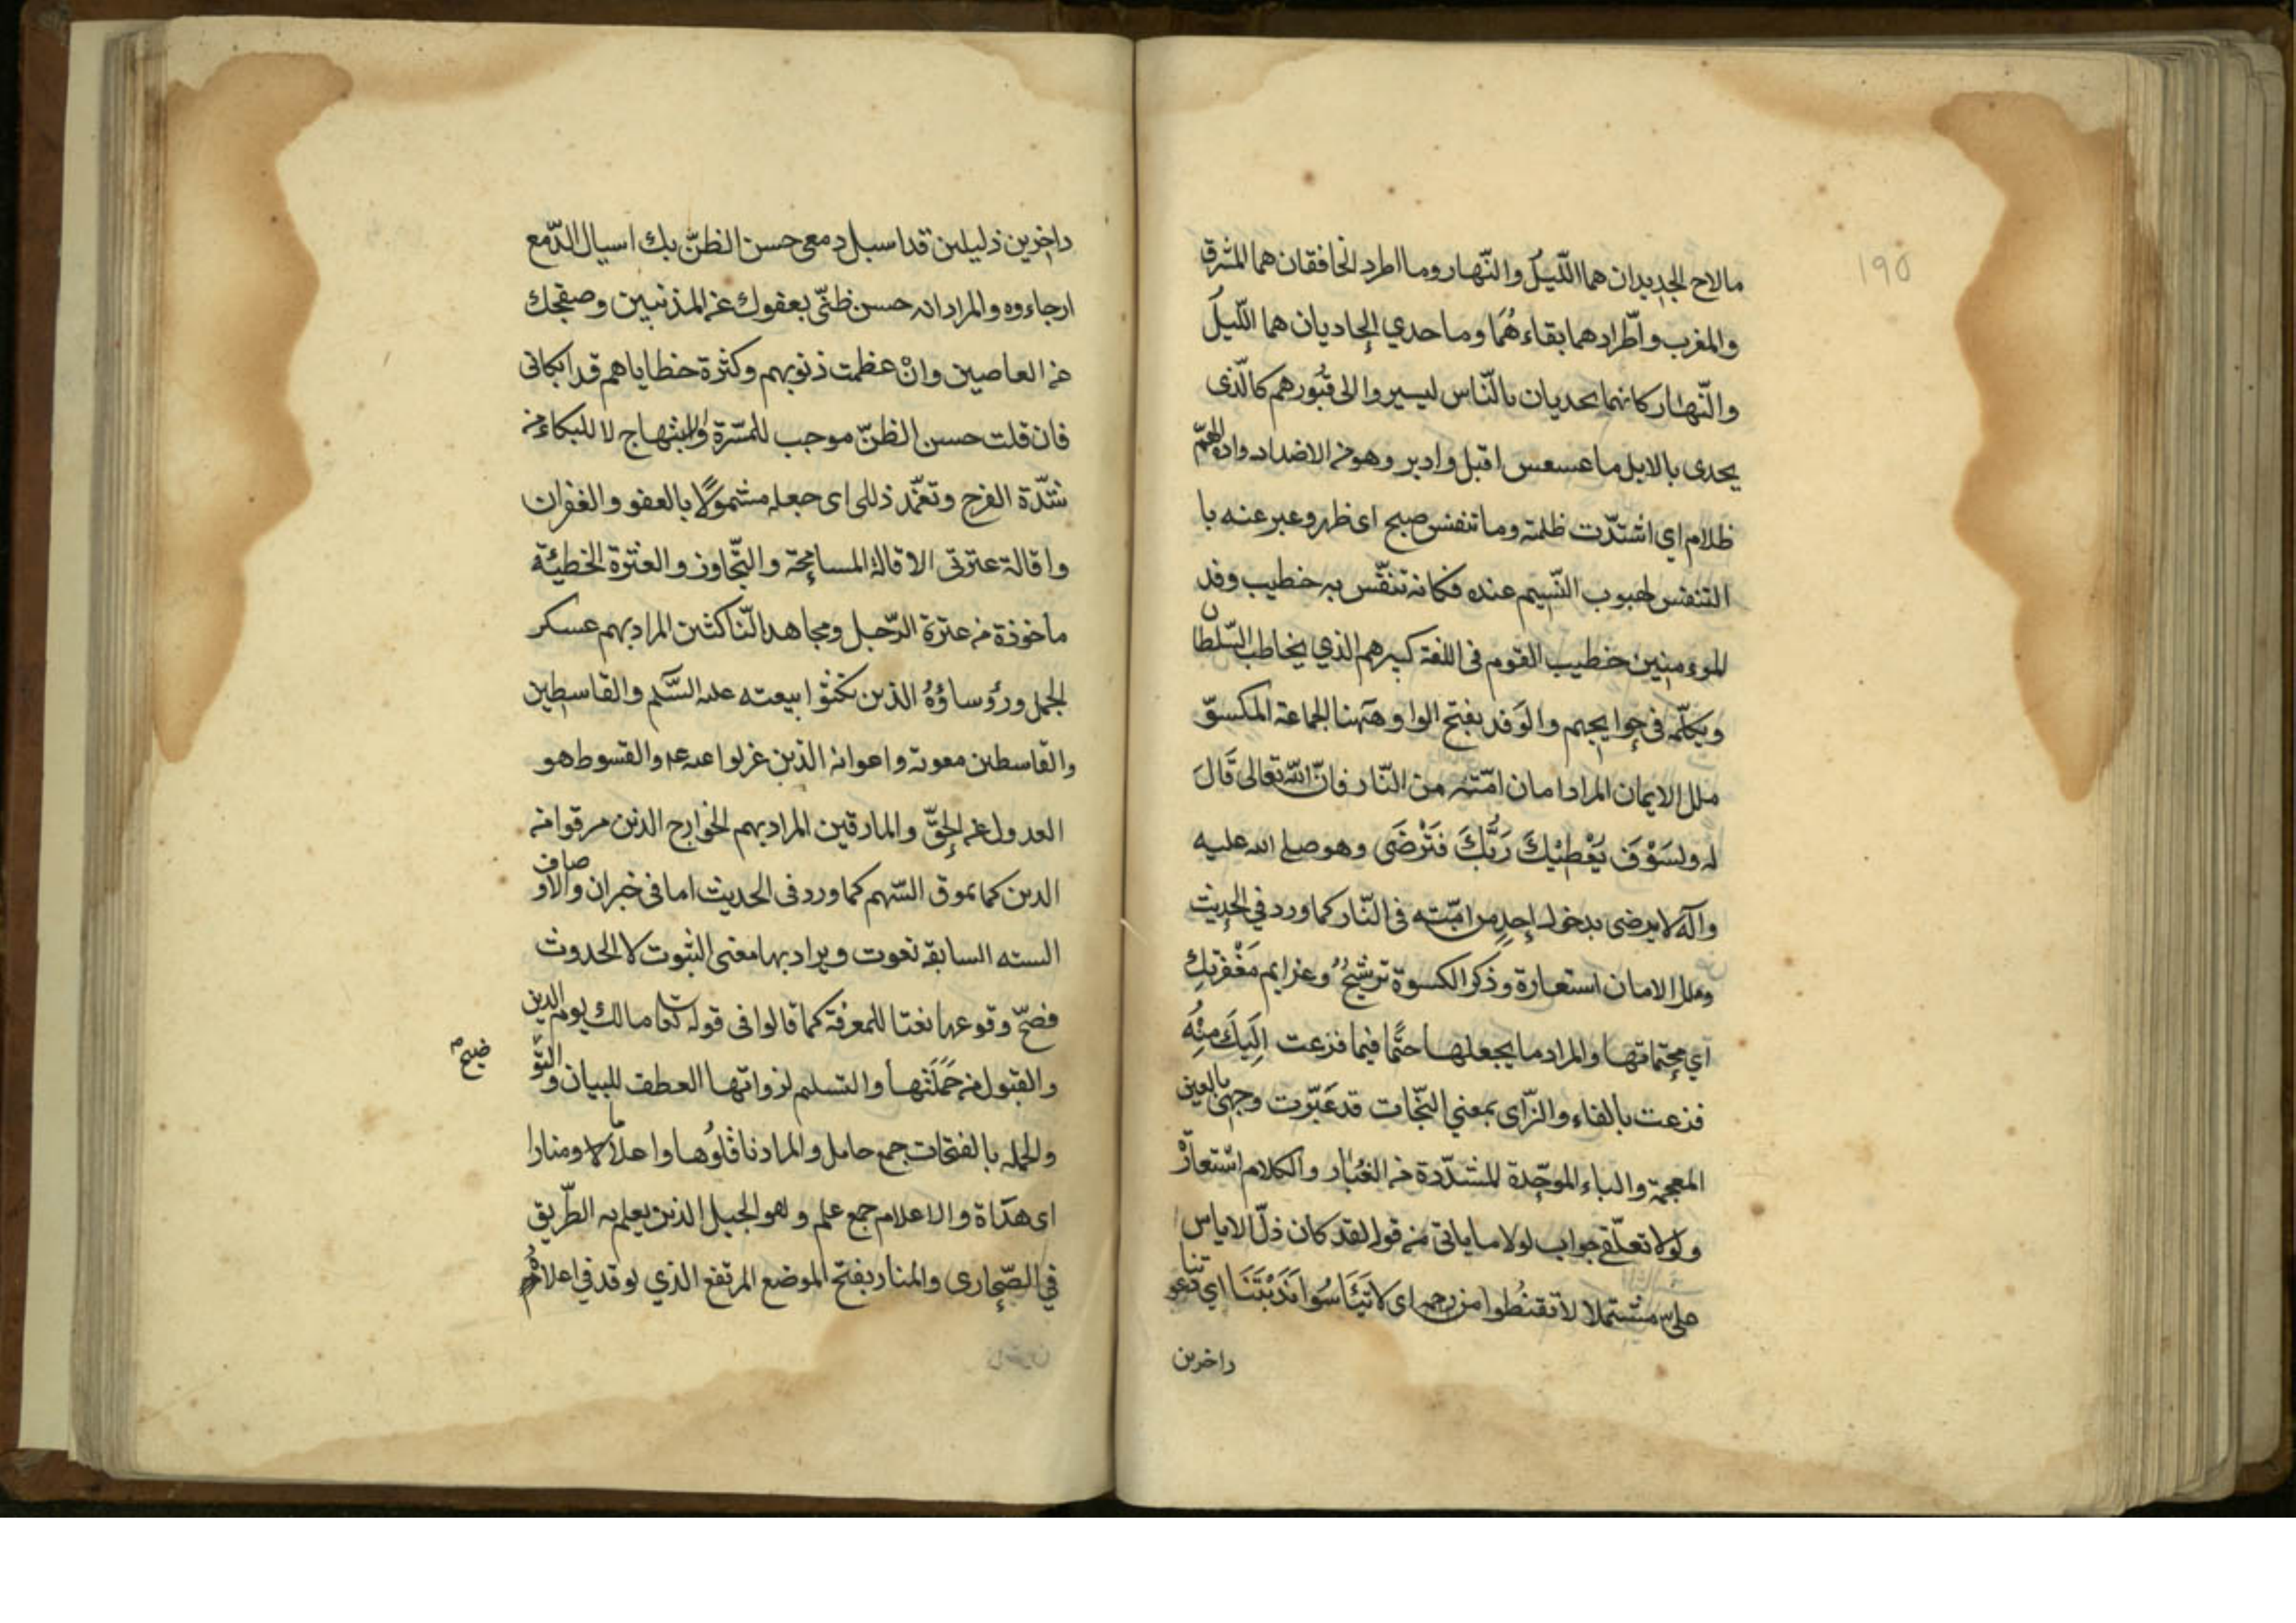 ١٩٥
مالاح الجديدان هما اللّيلُ والنّهار وما اطرد الخافقان هما المشرق
والمغرب واطّرادهما بقاءهُمَا وما حدي الحاديان هما اللّيلُ
والنّهار كانهما يحديان بالنّاس ليسيروا الى قبُورهم كالّذى
يحدى بالابل ما عسعس اقبل وادبر وهو من الاضداد وادلهمّ
ظلام اي اشتدّت ظلمته وما تنفس صبح اى ظهر وعبر عنه با
التنفس لهبوب النّسيم عنده فكانه تنفّس به خطيب وفد
المؤمنين خطيب القوم فى اللغة كبيرهم الذي يخاطب السّلطان
ويكلّمه في حوايجهم والوَفد بفتح الواو وههنا الجماعة المكسوّ
حلل الايمان المراد امان امّته من النّار فانّ اللّه تعالى قَالَ
له ولسَوْفَ يُعْطِيْكَ رَبُّكَ فَتَرْضَى وهو صلى الله عليه
وآله لا يرضى بدخول احدٍ من امّته فى النّار كما ورد في الحديث
وحلل الامان استعارة وذكر الكسوة ترشيحٌ وعزايم مَغْفرتِكَ
اي محتماتها والمراد ما يجعلها حتًما فيما فزعت اِلَيكَ مِنْهُ
فزعت بالفاء والزّاى بمعني التجّات قد غَبّرت وجهى بالغين
المعجمة والباء الموحّدة المشدّدة من الغُبار والكلام اسْتعارْ
ولولا تعلّقي جواب لولا ما ياتى من قوله لقد كان ذلّ الاياس
علىّ مشتملا لا تقنُطوا من رحمه اى لا تَيْئَاسُوا نَدَبْتَنَا اي دعوتنا
داخرين
داخِرين ذليلين قد اسبل دمعى حسن الظنّ بك اسبال الدّمع
ارجاءوه والمراد انه حسن ظنّى بعفوك عن المذنبين وصفحك
عن العاصين وانْ عظمت ذنوبهم وكثرة خطاياهم قد ابكانى
فان قلت حسن الظنّ موجب للمسّرة والابتهاج لا للبكاء من
شدّة الفرح وتغمّد ذللى اى جعله مشمولًا بالعفو والغفران
واقالة عثرتى الاقالة المسامحة والتّجاوز والعثرة الخطيئة
ماخوذة من عثرة الرّجل ومجاهد النّاكثين المراد بهم عسكر
الجمل ورؤساؤهُ الذين نكثوا بيعته عليه السَّلم والقاسطين
والقاسطين معوية واعوانه الذين عزلوا عنه عم والقسوط هو
العدول عن الحقّ والمارقين المراد بهم الخوارج الذين مرقوا من
الدين كما يموق السّهم كما ورد فى الحديث اما فى خبران والاوصاف
السته السابقه نعوت ويراد بها معنى الثبوت لا الحدوث
فصحّ وقوعها نعتا للمعرفة كما قالوا فى قوله تعا مالك يوم الدين
والقبول من حَمَلَتها والتسليم لرواتها العطف للبيان والتّو
ضيح
والحمله بالفتحات جمع حامل والمراد ناقلوُها واعلامًا ومنارا
اى هدَاة والاعلام جمع علم وهو الجبل الذين يعلم به الطّريق
في الصّحارى والمنار بفتح الموضع المرتفع الذي يوقد في اعلاه